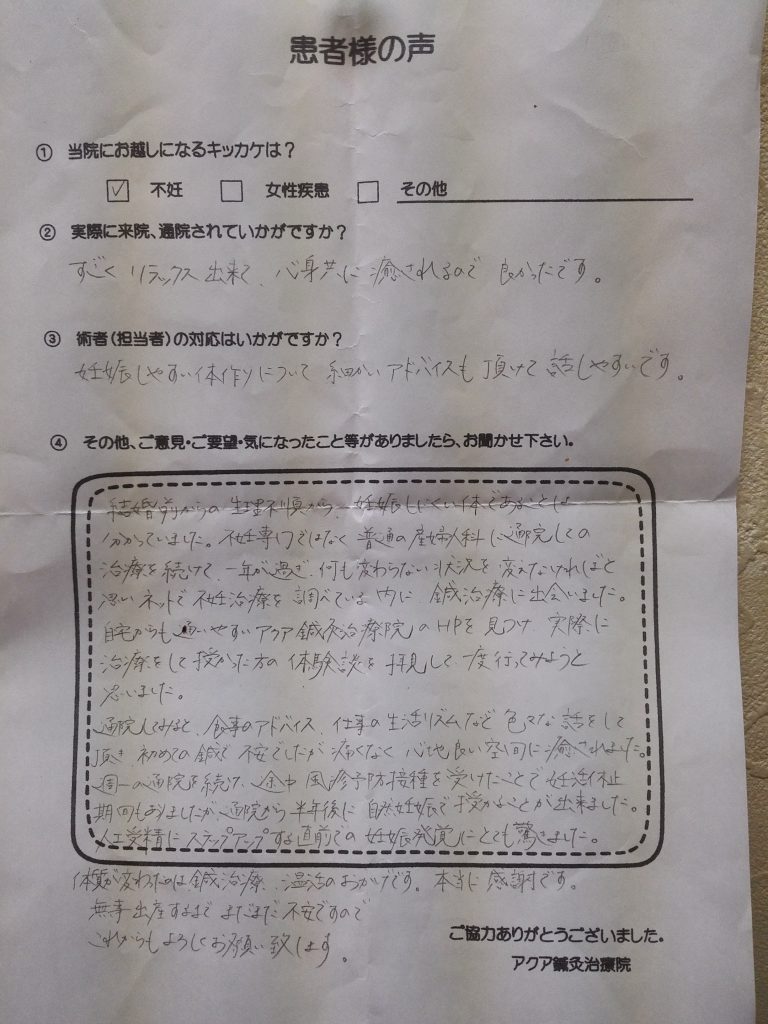 患者様の声
① 当院にお越しになるキッカケは？
☑ 不妊 □ 女性疾患 □ その他
② 実際に来院、通院されていかがですか？
すごくリラックス出来て、心身共に癒されるので良かったです。
③ 術者(担当者)の対応はいかがですか？
妊娠しやすい体作りについて細かいアドバイスも頂けて話しやすいです。
④ その他、ご意見・ご要望・気になったこと等がありましたら、お聞かせ下さい。
結婚前からの生理不順から、妊娠しにくい体であることは
分かっていました。不妊専門ではなく普通の産婦人科に通院しての
治療を続けて、一年が過ぎ、何も変わらない状況を変えなければと
思いネットで不妊治療を調べている内に、鍼治療に出会いました。
自宅からも通いやすいアクア鍼灸治療院のHPを見つけ、実際に
治療をして授かった方の体験談を拝見して一度行ってみようと
思いました。
通院してみると、食事のアドバイス、仕事の生活リズムなど色々な話をして
頂き 初めての鍼で不安でしたが痛くなく心地良い空間に癒されました。
週一の通院を続け、途中風疹予防接種を受けたことで妊活休止
期間もありましたが、通院から半年後に自然妊娠で授かることが出来ました。
人工受精にステップアップする直前での妊娠発覚にとても驚きました。
体質が変わったのは鍼治療、温活のおかげです。本当に感謝です。
無事出産するまでまだまだ不安ですので
これからもよろしくお願い致します。
ご協力ありがとうございました。
アクア鍼灸治療院